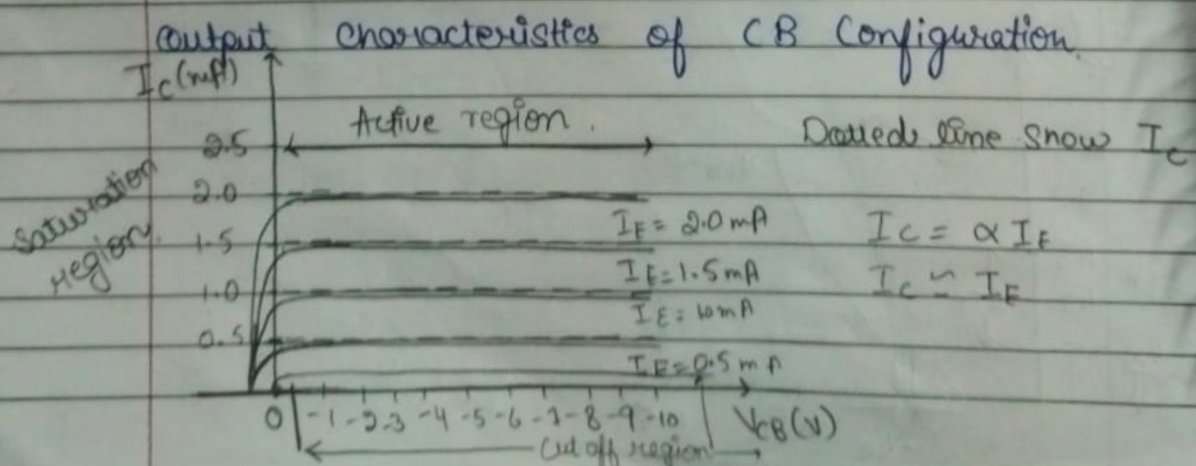 Output Characteristics of CB Configuration.
Ic (mA)
Active region.
Dotted line show Ic
2.5
Saturation region.
2.0
IE = 2.0 mA
Ic = α IE
1.5
IE = 1.5 mA
Ic ≃ IE
1.0
IE = 10 mA
0.5
IE = 0.5 mA
0 -1 -2 -3 -4 -5 -6 -7 -8 -9 -10 VCB (V)
Cut off region